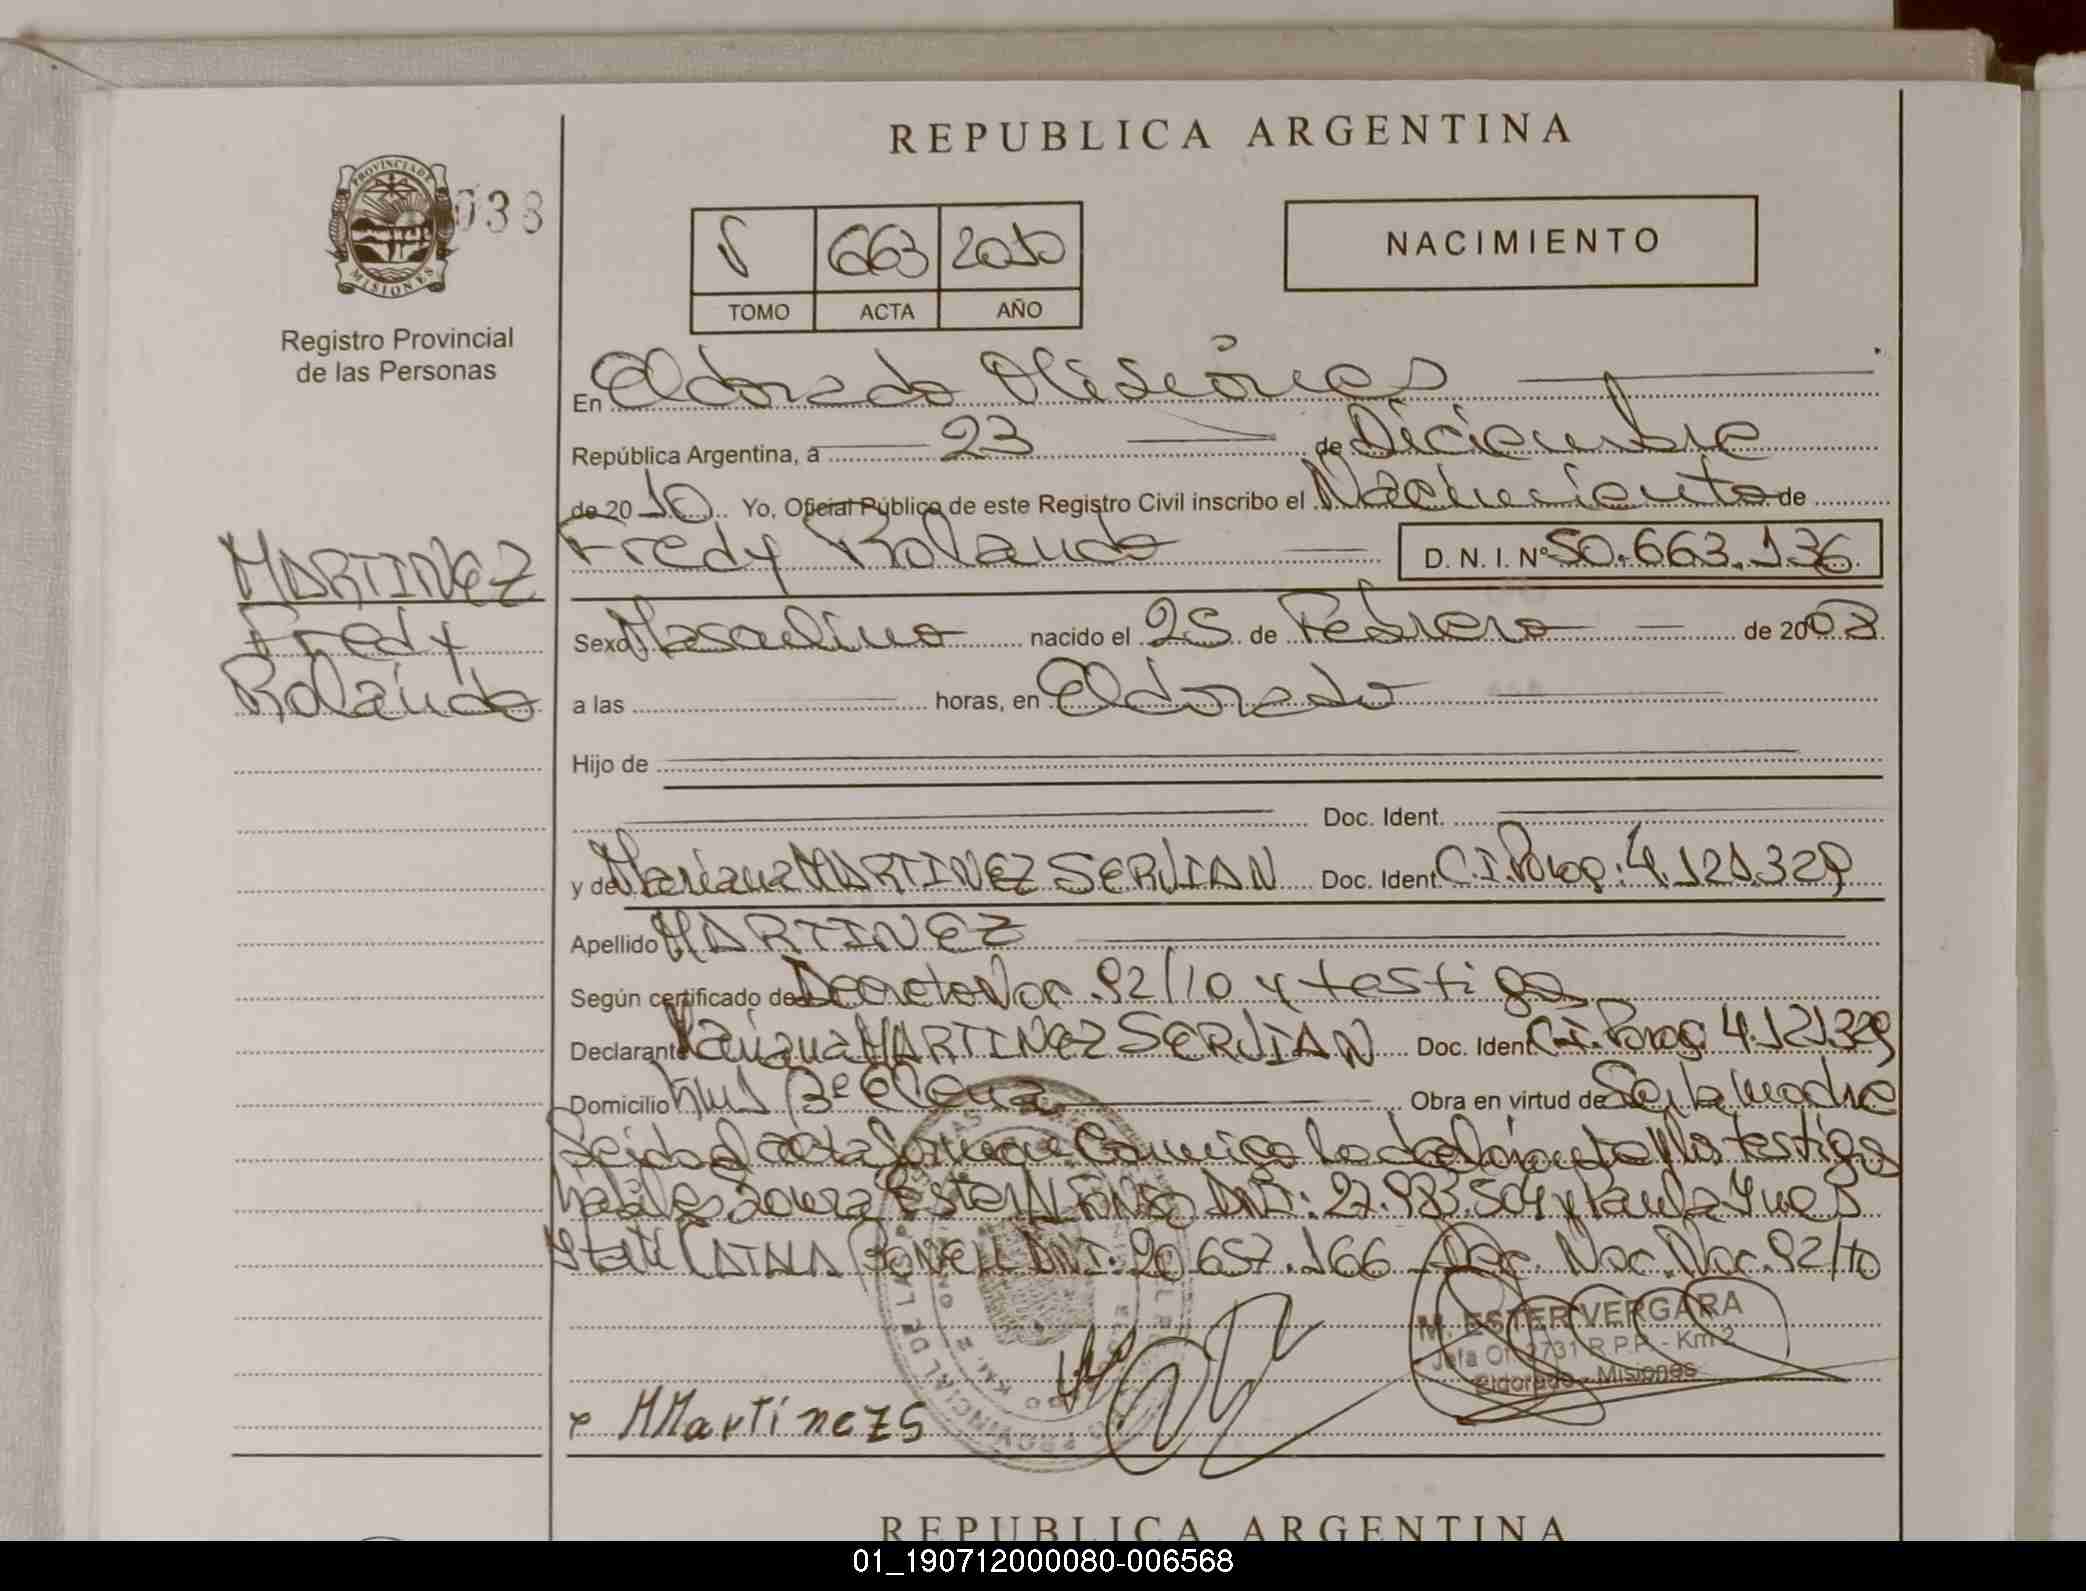 REPUBLICA ARGENTINA
PROVINCIA DE
MISIONES
038
Registro Provincial
de las Personas
663 2010
TOMO ACTA AÑO
NACIMIENTO
En Eldorado Misiones
República Argentina, a 23 de Diciembre
de 2010 Yo, Oficial Público de este Registro Civil inscribo el Nacimiento de
Fredy Rolando D. N. I. Nº 50.663.136
MARTINEZ
Fredy
Rolando
Sexo Masculino nacido el 25 de Febrero de 2008
a las horas, en Eldorado
Hijo de
Doc. Ident.
y de Mariana MARTINEZ SERVIAN Doc. Ident. C.I. Parag. 4.121.329
Apellido MARTINEZ
Según certificado de Decreto Nac. 92/10 y testigos
Declarante Mariana MARTINEZ SERVIAN Doc. Ident. C.I. Parag. 4.121.329
Domicilio Bº Elena Obra en virtud de Ser la madre
Leida el acta firman Conmigo la declarante y los testigos
ESTER DNI: 27.983.504 y Paula Ines
DNI: 20.657.166 Dec. Nac. Nac. 92/10
M. ESTER VERGARA
Jefa Of. 2731 R.P.P. - Km 2
Eldorado - Misiones
MMartinezS
REPUBLICA ARGENTINA
01_190712000080-006568